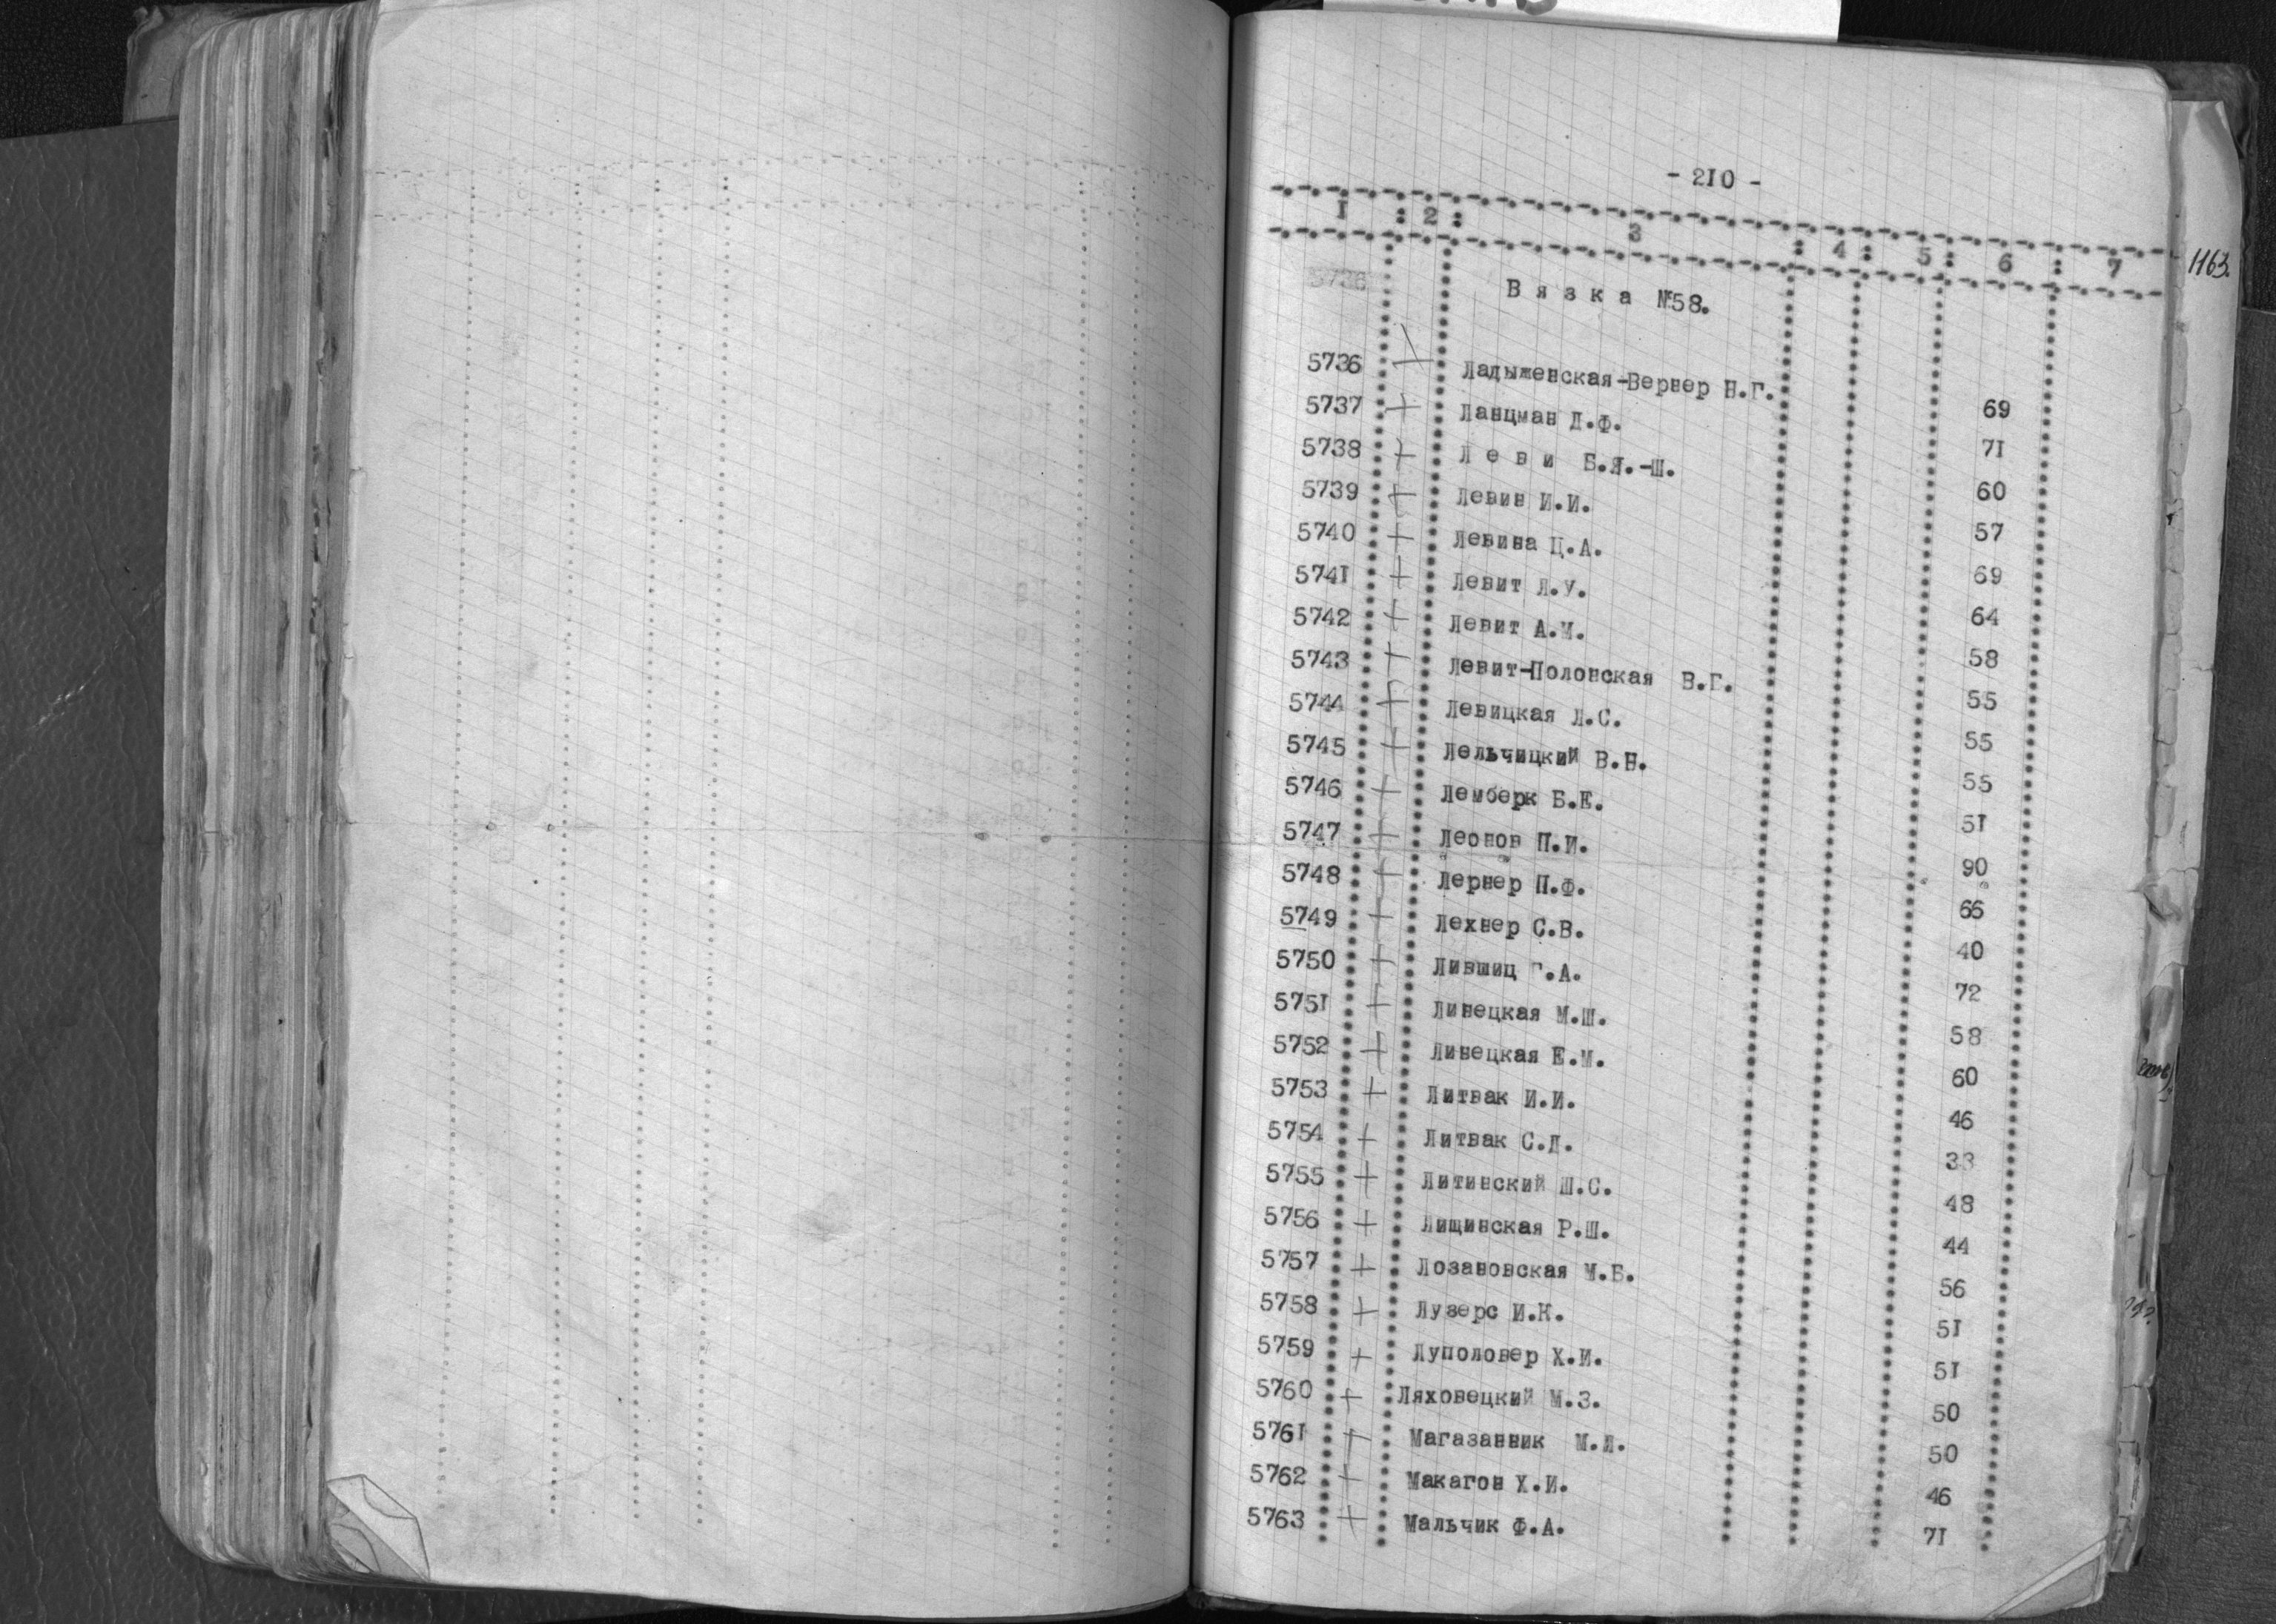 - 210 -
1 : 2 : 3 : 4 : 5 : 6 : 7
1163.
5736
Вязка №58.
5736 + Ладыженская-Вернер Н.Г. 69
5737 + Ланцман Д.Ф. 71
5738 + Леви Б.Я.-Ш. 60
5739 + Левин И.И. 57
5740 + Левина Ц.А. 69
5741 + Левит Л.У. 64
5742 + Левит А.М. 58
5743 + Левит-Полонская В.Г. 55
5744 + Левицкая Л.С. 55
5745 + Лельчицкий В.Н. 55
5746 + Лемберк Б.Е. 51
5747 + Леонов П.И. 90
5748 + Лернер П.Ф. 66
5749 + Лехнер С.В. 40
5750 + Лившиц Г.А. 72
5751 + Линецкая М.Ш. 58
5752 + Линецкая Е.М. 60
5753 + Литвак И.И. 46
5754 + Литвак С.Д. 33
5755 + Литинский Ш.С. 48
5756 + Лищинская Р.Ш. 44
5757 + Лозановская М.Б. 56
5758 + Лузерс И.К. 51
5759 + Луполовер Х.И. 51
5760 + Ляховецкий М.З. 50
5761 + Магазанник М.Я. 50
5762 + Макагон Х.И. 46
5763 + Мальчик Ф.А. 71